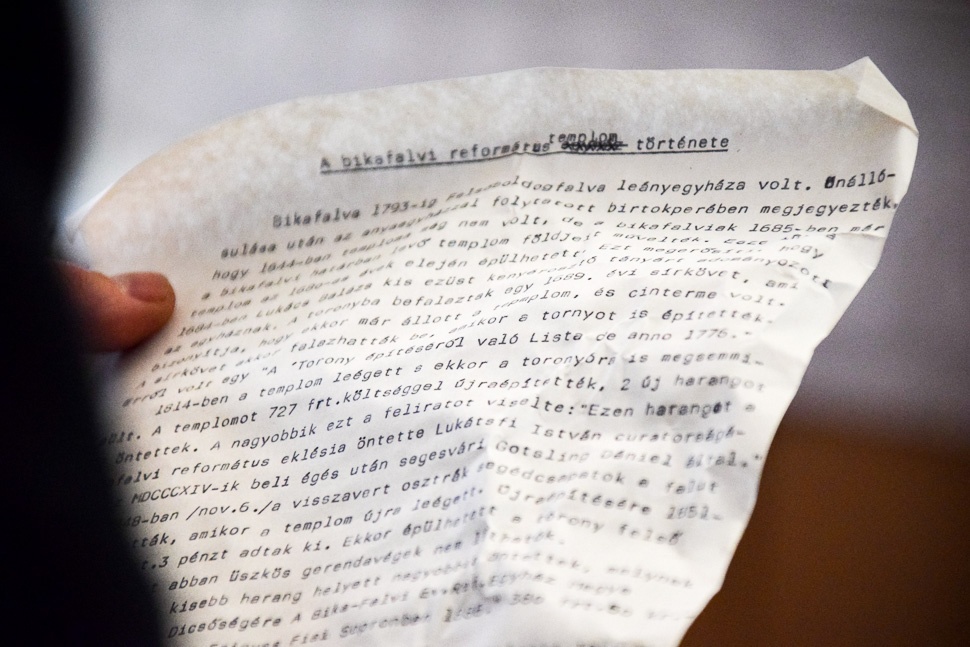 templom
A bikafalvi református története
Bikafalva 1793-ig Felsőboldogfalva leányegyháza volt. Önálló-
sulása után az anyaegyházzal folytatott birtokperében megjegyezték,
hogy 1644-ben templomа még nem volt, de a bikafalviak 1685-ben már
a bikafalvi határban levő templom földjeit művelték.
templom az 1680-as évek elején épülhetett. Ezt megerősíti, hogy
1684-ben Lukács Balázs kis ezüst kenyérosztó tányért adományozott
az egyháznak. A toronyba befalaztak egy 1689. évi sírkövet, ami
bizonyítja, hogy ekkor már állott a templom, és cinterme volt.
A sírkövet akkor falazhatták be, amikor a tornyot is építették.
erről volt egy "A Torony építéséről való Lista de anno 1776.-
1814-ben a templom leégett s ekkor a toronyóra is megsemmi-
ült. A templomot 727 frt.költséggel újraépítették, 2 új harangot
öntettek. A nagyobbik ezt a feliratot viselte:"Ezen harangot a
falvi református eklésia öntette Lukátsfi István curatorságá-
MDCCCXIV-ik beli égés után sagesvári Gotsling Dániel által."
48-ban /nov.6./a visszavert osztrák segédcsapatok a falut
tták, amikor a templom újra leégett. Újraépítésére 1851-
t.3 pénzt adtak ki. Ekkor épülhetett a torony felső
abban üszkös gerendavégek nem láthatók.
kisebb harang helyett nagyobbat öntettek, melynek
Dicsőségére A Bika-Falvi Ev.Ref.Egyház
Fiai Sopronban